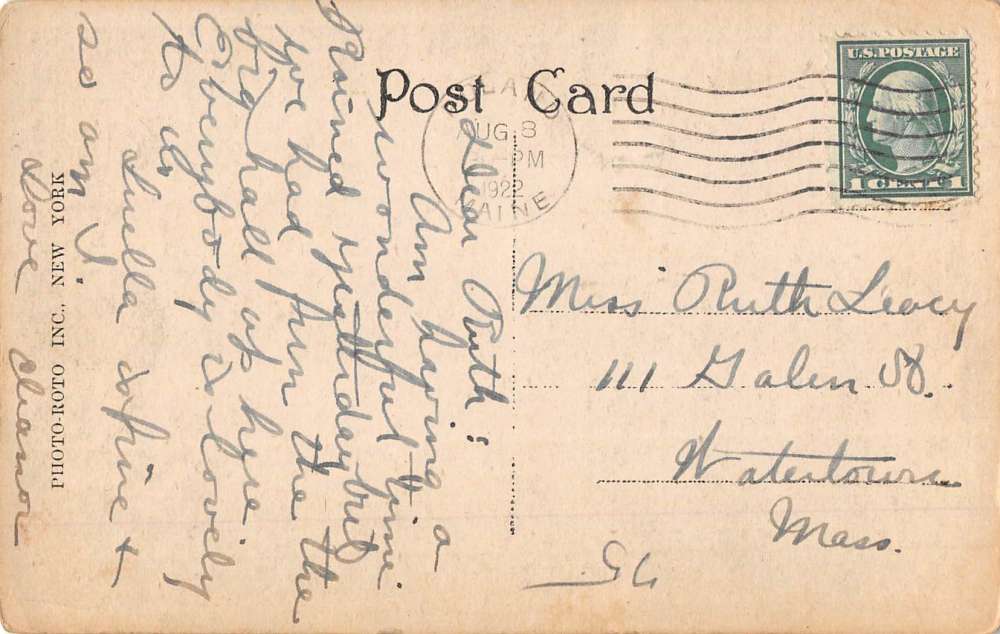 Post Card
AUG 8
PM
1922
MAINE
U.S. POSTAGE
1 CENT 1
Dear Ruth:
Am having a
wonderful time
Rained yesterday but
we had fun in the the
big hall up here
Everybody is lovely
to us
Luella is fine +
so am I
Love Eleanor
Miss Ruth Leacy
111 Galen St.
Watertown
Mass.
PHOTO-ROTO INC., NEW YORK